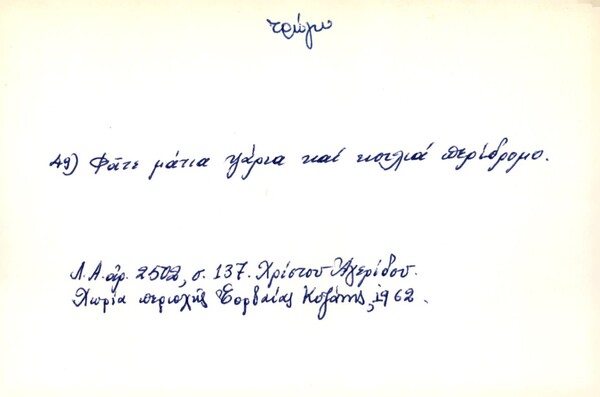 τρώγω
49) Φᾶτε μάτια ψάρια καί κοιλιά περίδρομο.
Λ.Α. ἀρ. 2502, σ. 137. Χρίστου Ἀγερίδου.
Χωρία περιοχῆς Ἑορδαίας Κοζάνης, 1962.